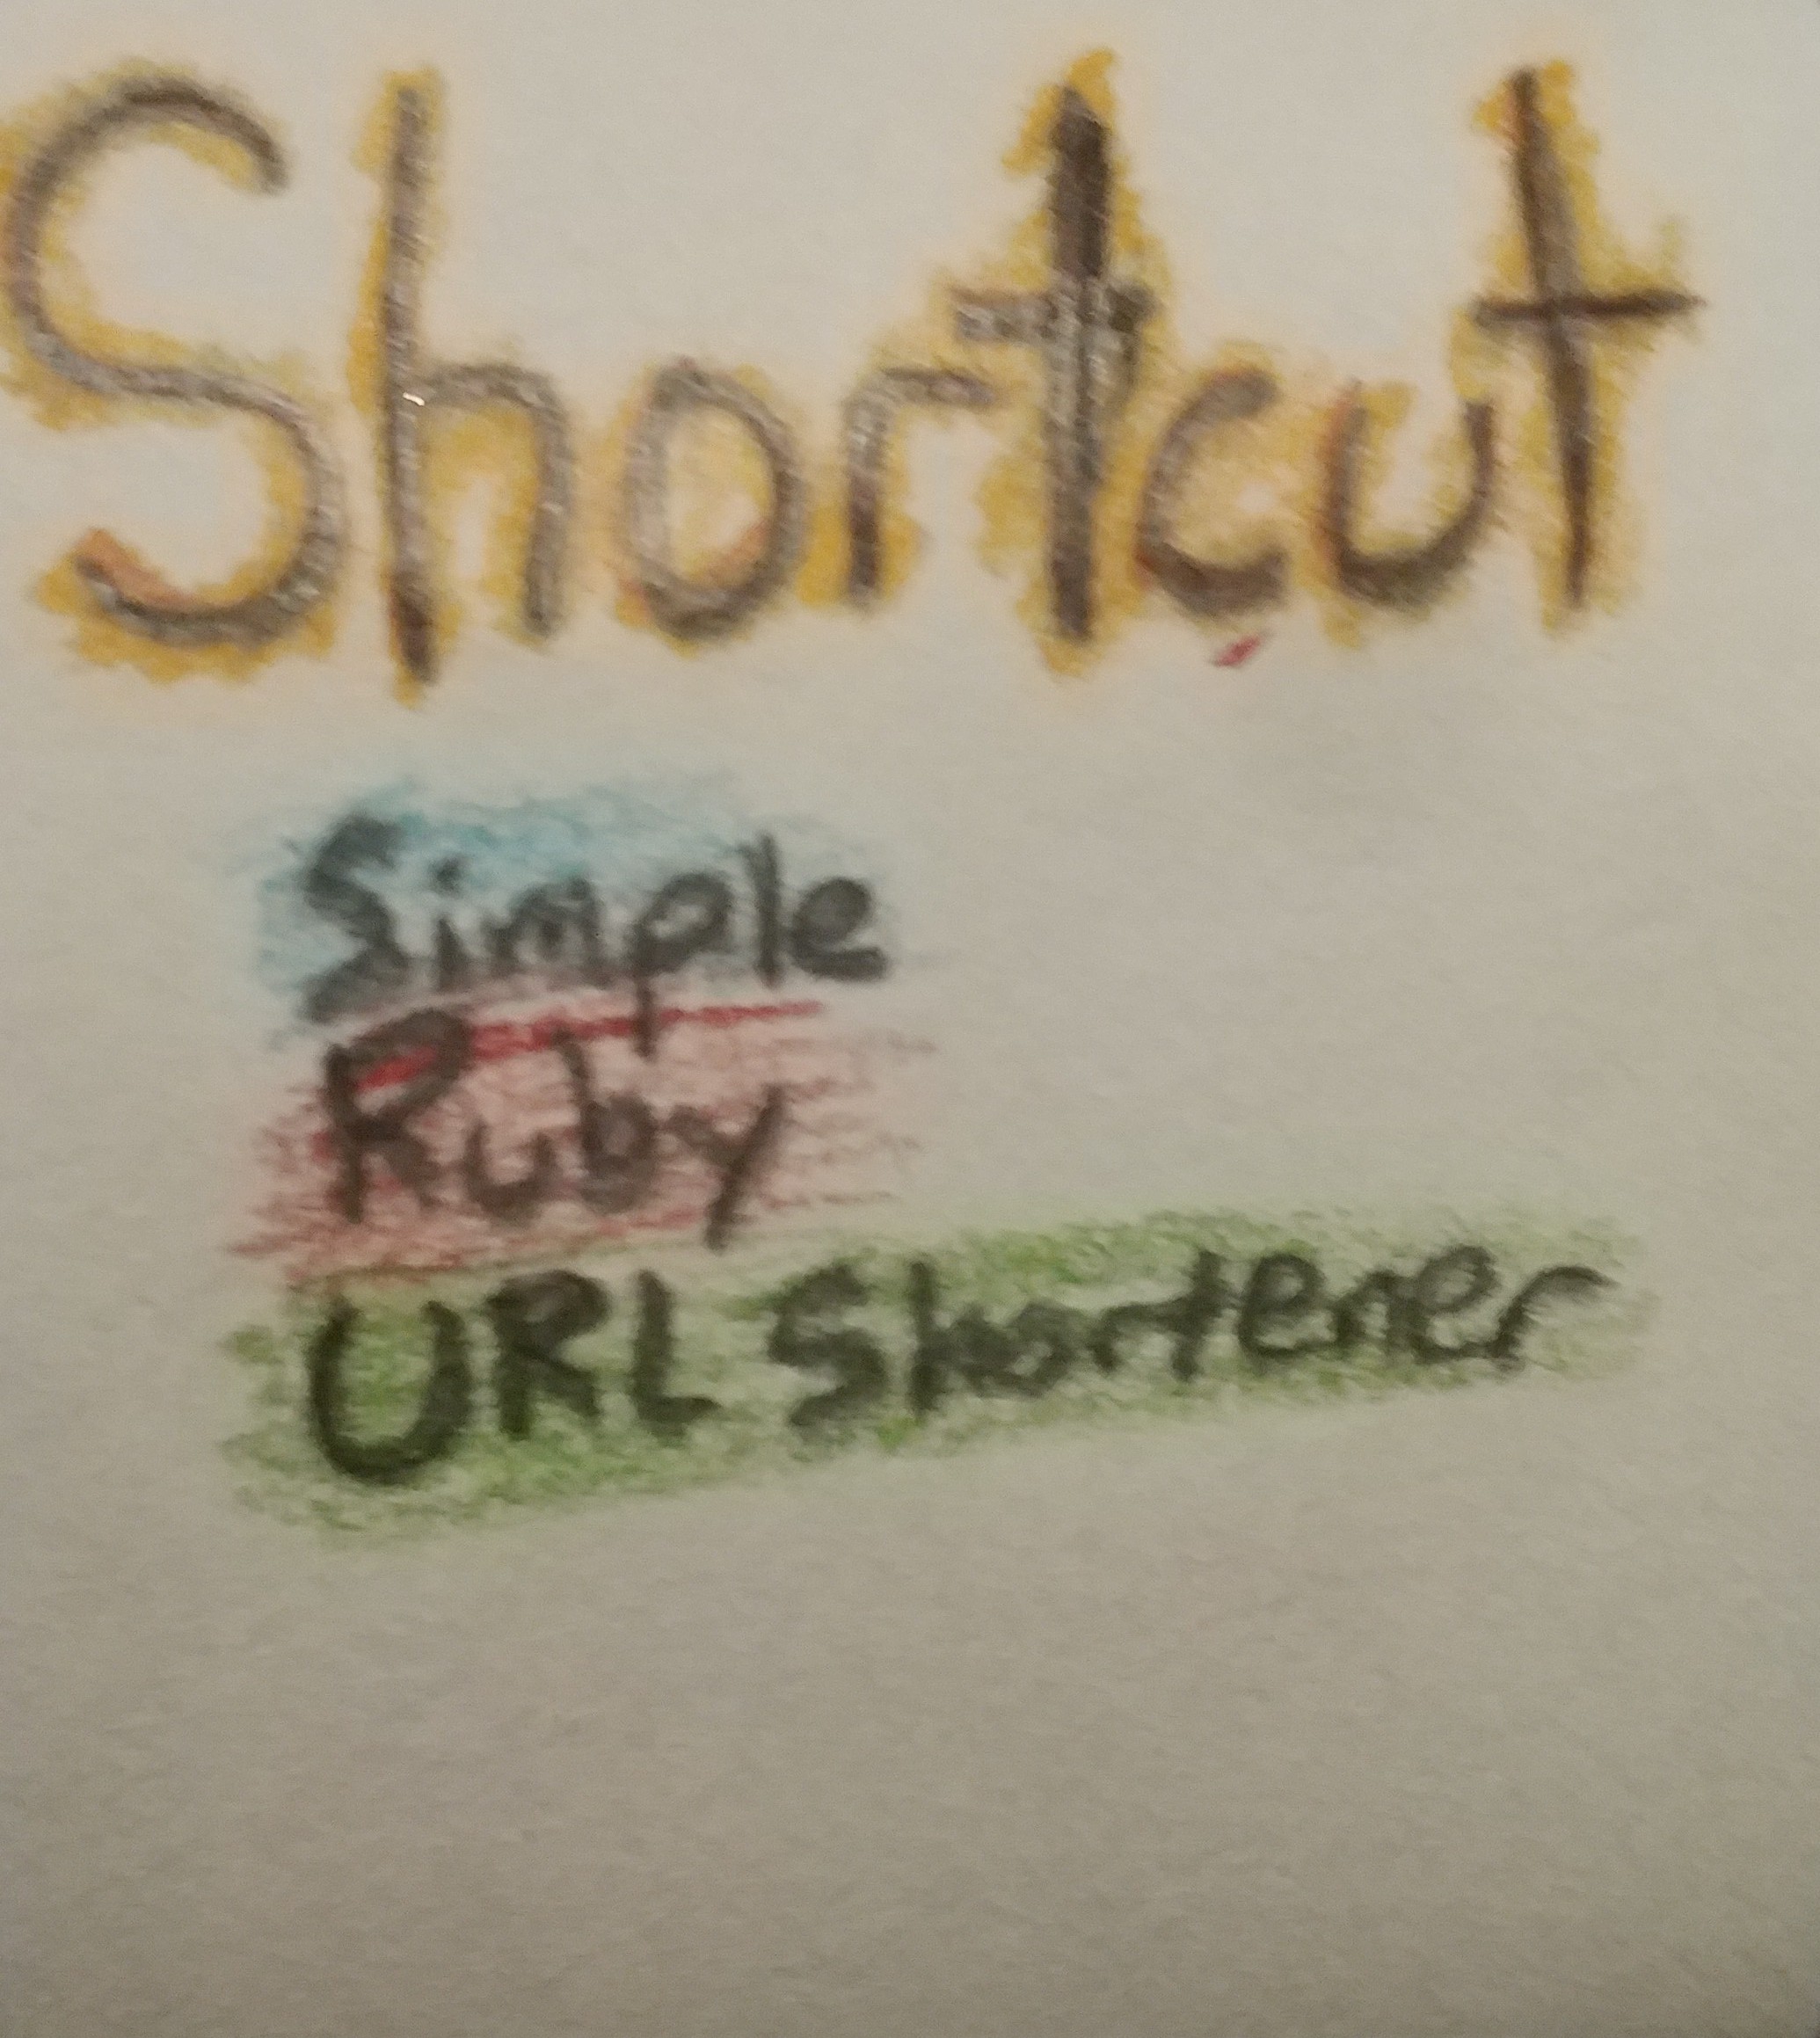 Shortcut
Simple
Ruby
URL Shortener